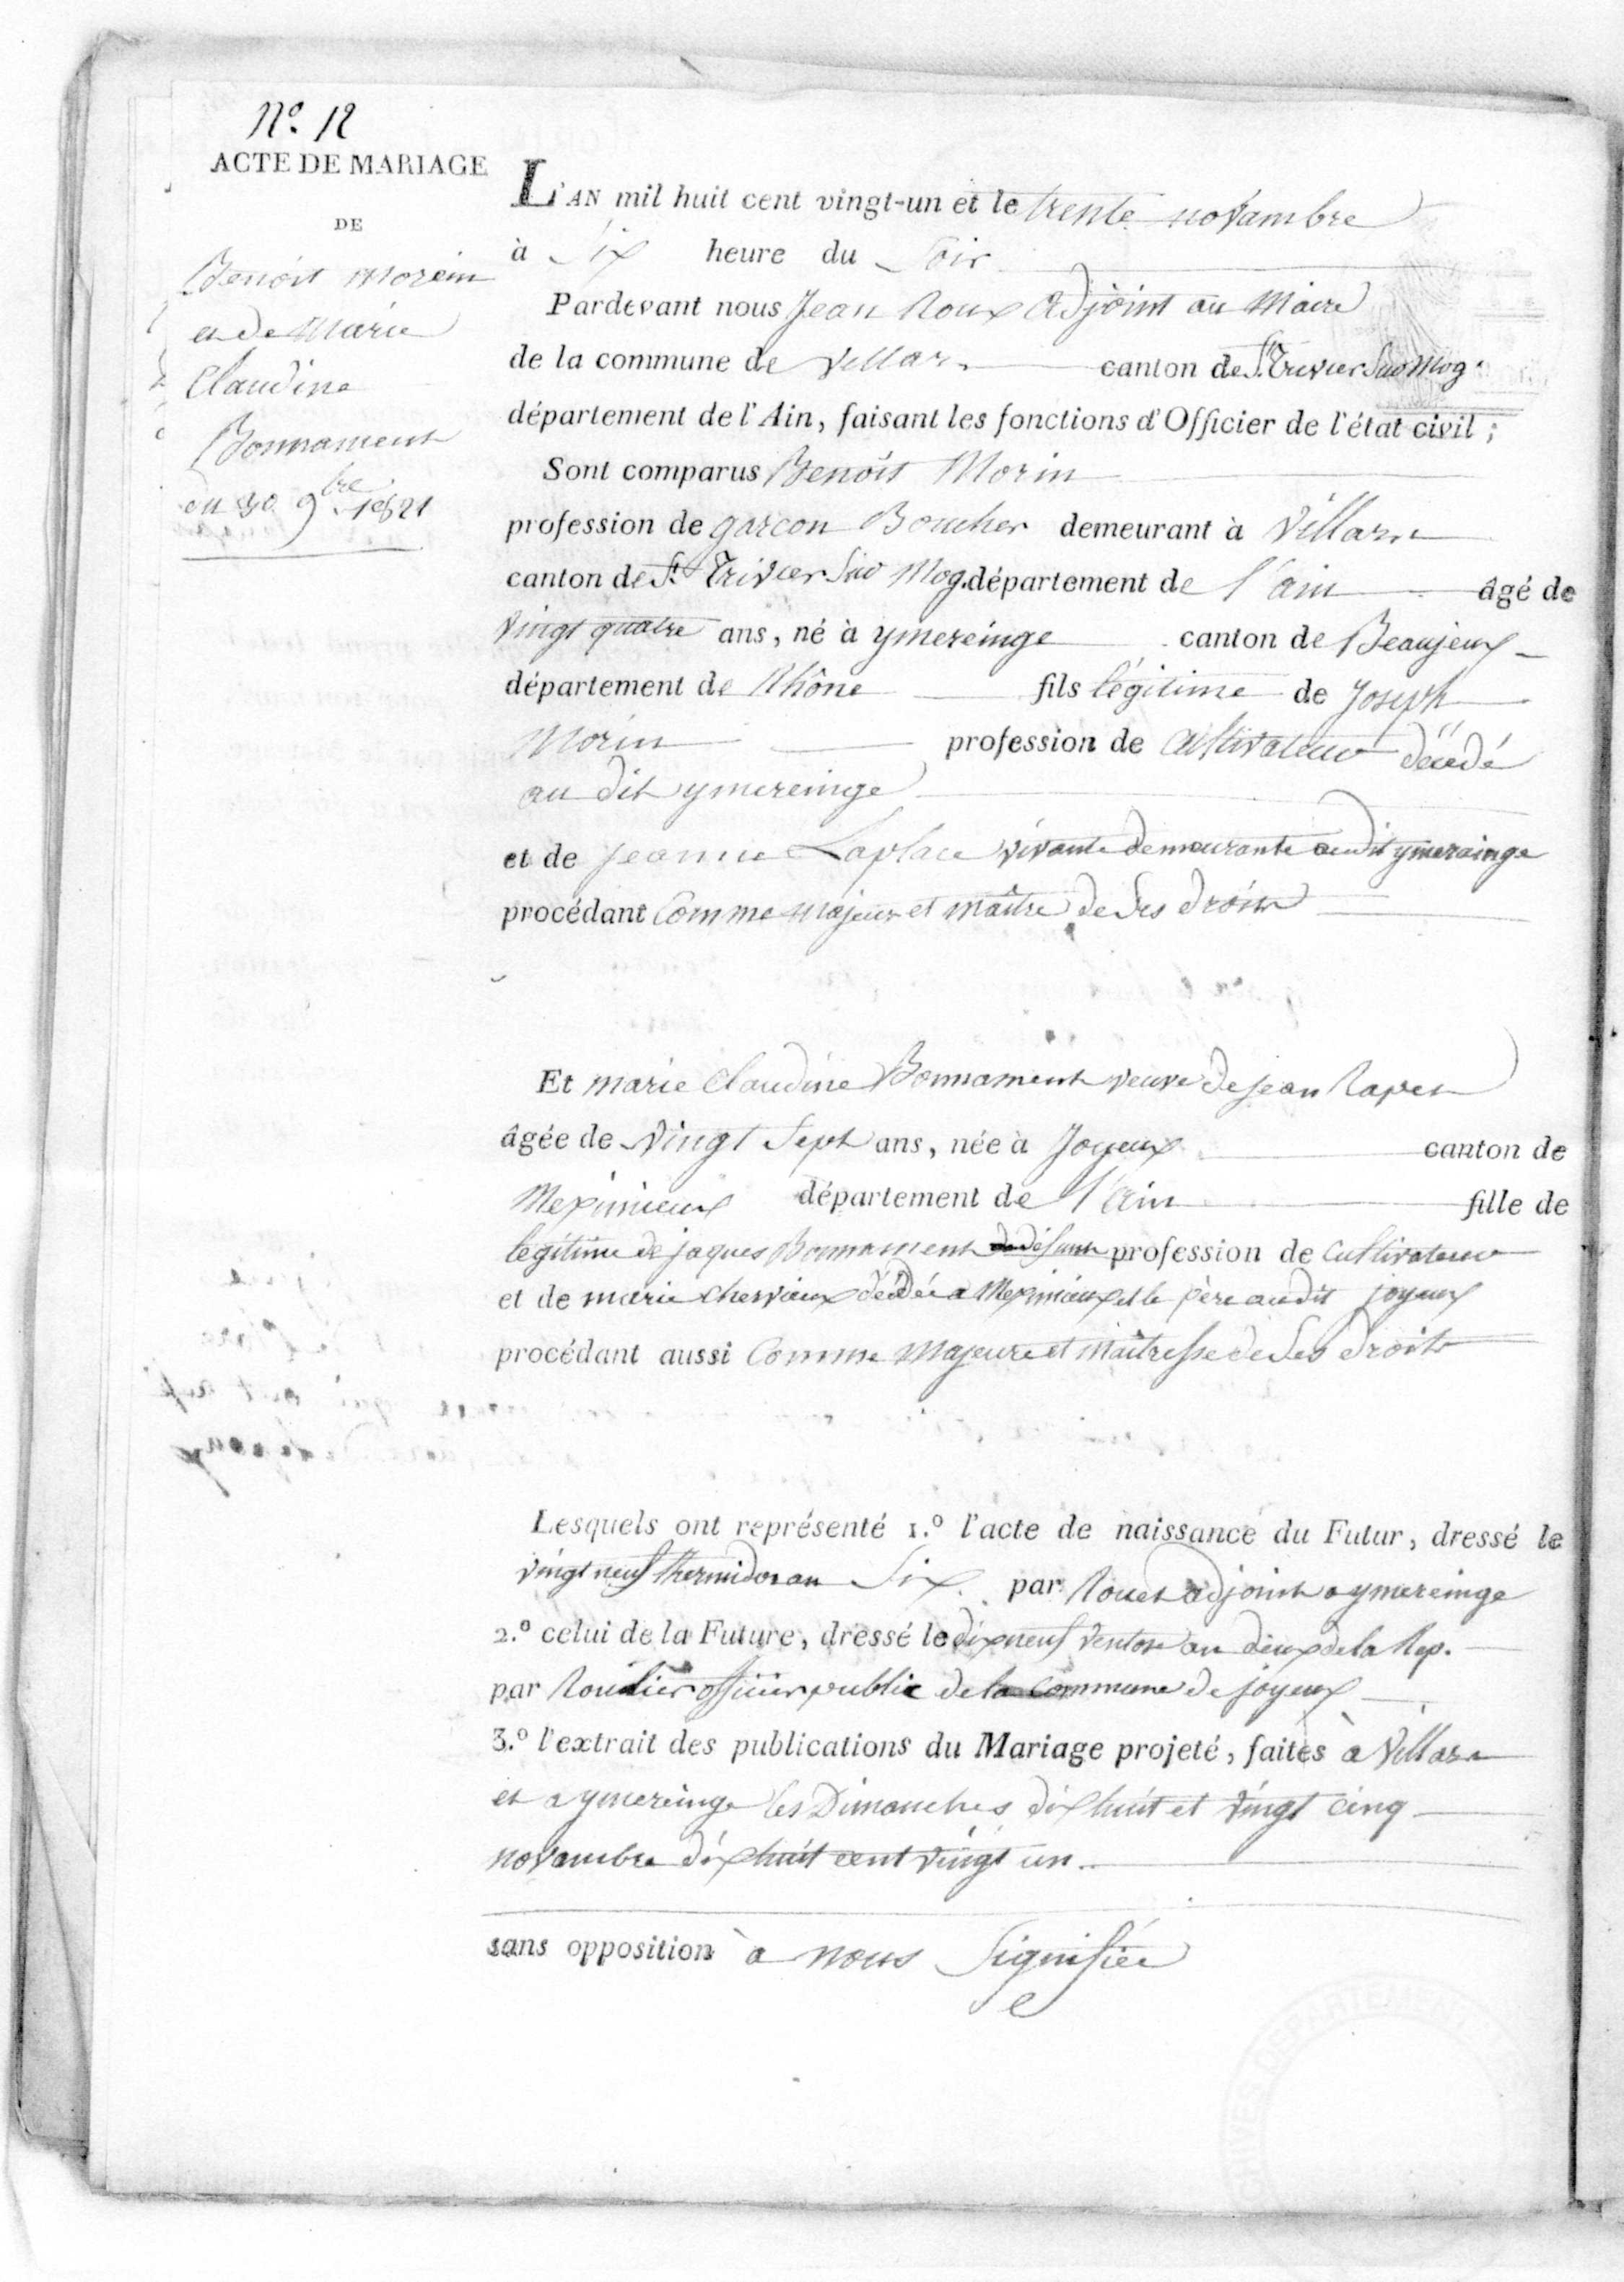 N.º 12
ACTE DE MARIAGE
DE
Benoit Morein
et de Marie
Claudine
Bonnament
du 30 9bre 1821
L'AN mil huit cent vingt-un et le trente novambre
à Six heure du Soir
Pardevant nous Jean Roux adjoint au Maire
de la commune de Villars canton de St. Trivier Sur Mog.
département de l'Ain, faisant les fonctions d'Officier de l'état civil;
Sont comparus Benoit Morin
profession de garcon Boucher demeurant à Villars
canton de St. Trivier Sur Mog. département de l'ain âgé de
vingt quatre ans, né à ymereinge canton de Beaujeux
département de Rhône fils légitime de Joseph
Morin profession de Cultivateur décédé
au dit ymereinge
et de Jeanne Laplace vivante demeurante audit ymerainge
procédant Comme majeur et maître de Ses droits
Et marie Claudine Bonnament veuve de jean Rapet
âgée de vingt Sept ans, née à Joyeux canton de
Meximieux département de l'ain fille de
legitime de jaques Bonnament profession de Cultivateur
et de marie Chervieux décédée a Meximieux et le père audit joyeux
procédant aussi Comme Majeure et maitresse de Ses droits
Lesquels ont représenté 1.º l'acte de naissance du Futur, dressé le
vingt neuf thermidor an Six par Rouet adjoint a ymereinge
2.º celui de la Future, dressé le dix neuf ventose an deux de la Rep.
par Roulier officier public de la Commune de joyeux
3.º l'extrait des publications du Mariage projeté, faites à Villars
et a ymereinge les Dimanches dix huit et vingt cinq
novambre dix huit cent vingt un
sans opposition a nous Signifiée